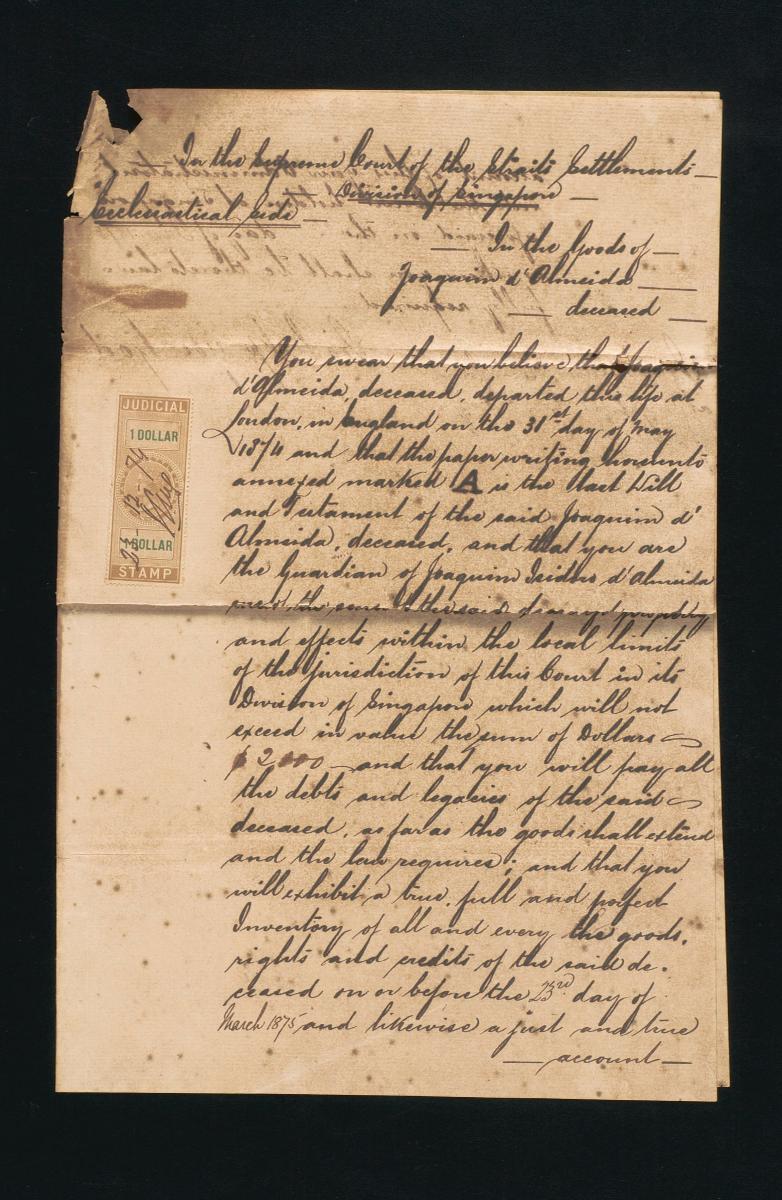 In the Supreme Court of the Straits Settlements
Division of Singapore
Ecclesiastical Side
In the Goods of
Joaquim d'Almeida
deceased
You swear that you believe that Joaquim
d'Almeida, deceased, departed this life at
London, in England on the 31st day of May
1874 and that the paper writing hereunto
annexed marked A is the last Will
and Testament of the said Joaquim d'
Almeida, deceased, and that you are
the Guardian of Joaquim Isidro d'Almeida
the said property
and effects within the local limits
of the jurisdiction of this Court in its
Division of Singapore which will not
exceed in value the sum of Dollars
$ 2000 and that you will pay all
the debts and legacies of the said
deceased, as far as the goods shall extend
and the law requires; and that you
will exhibit a true, full and perfect
Inventory of all and every the goods,
rights and credits of the said de-
ceased on or before the 23rd day of
March 1875 and likewise a just and true
account
JUDICIAL
1 DOLLAR
1 DOLLAR
STAMP